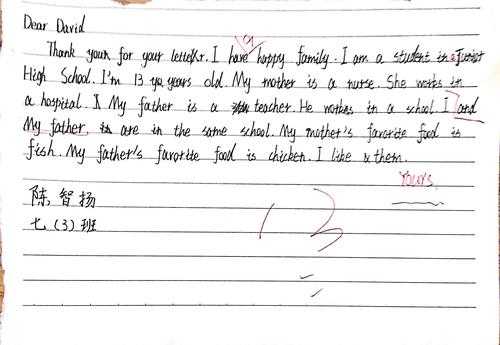 Dear David
Thank your for your letter. I have a happy family. I am a student in a Junior
High School. I'm 13 ye years old. My mother is a nurse. She works in
a hospital. My father is a teacher. He works in a school. I and
My father, are in the same school. My mother's favorite food is
fish. My father's favorite food is chicken. I like them.
Yours
陈智扬
七(3)班
13